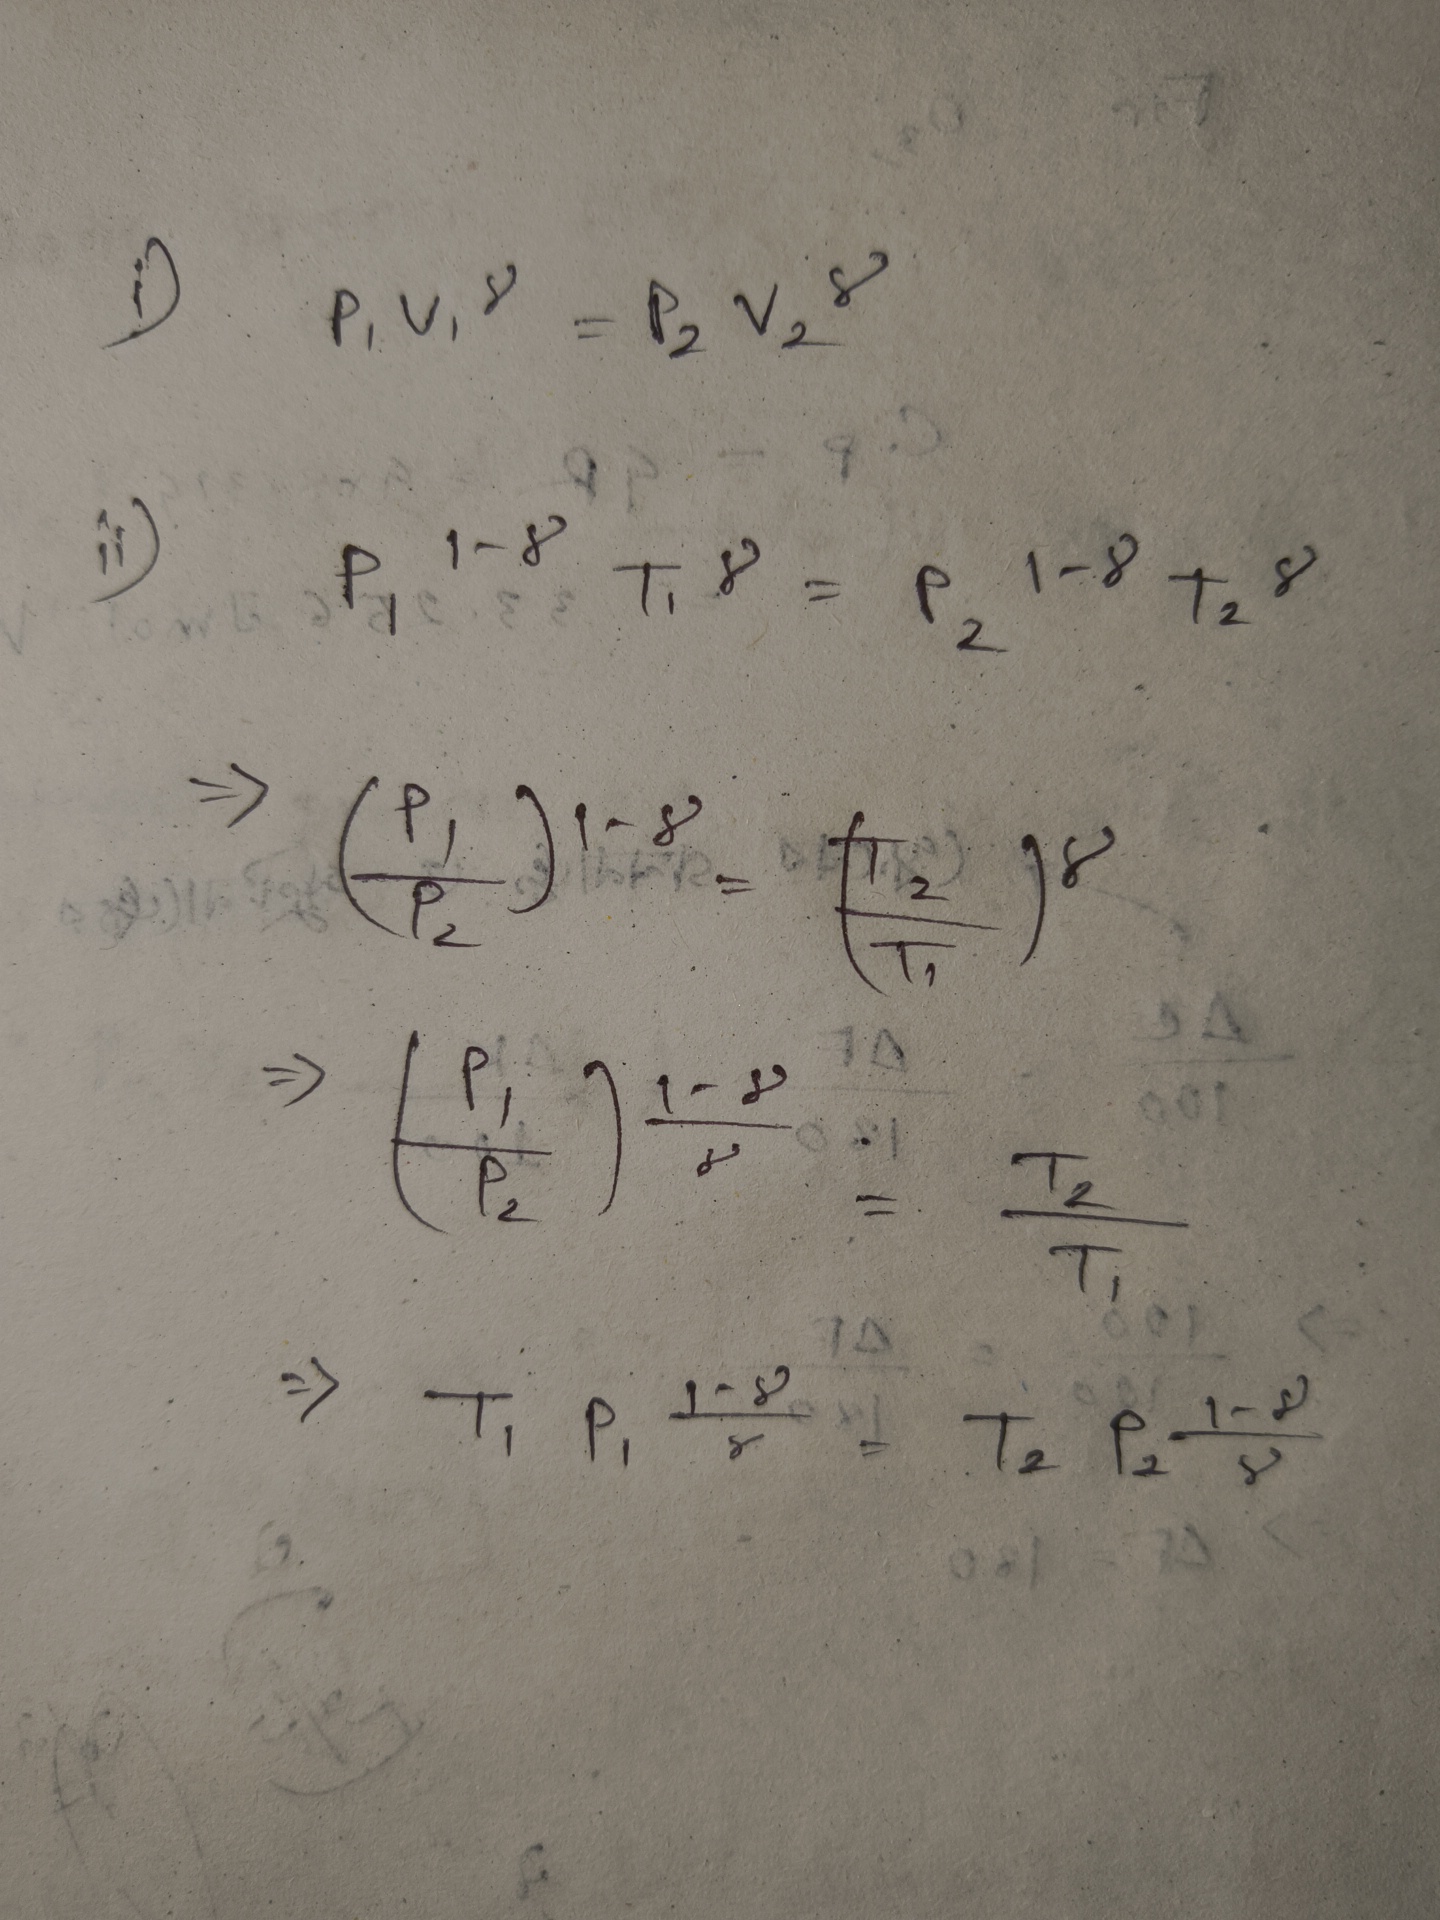 i) P₁ V₁^γ = P₂ V₂^γ
ii) P₁^(1-γ) T₁^γ = P₂^(1-γ) T₂^γ
⇒ (P₁/P₂)^(1-γ) = (T₂/T₁)^γ
⇒ (P₁/P₂)^((1-γ)/γ) = T₂/T₁
⇒ T₁ P₁^((1-γ)/γ) = T₂ P₂^((1-γ)/γ)